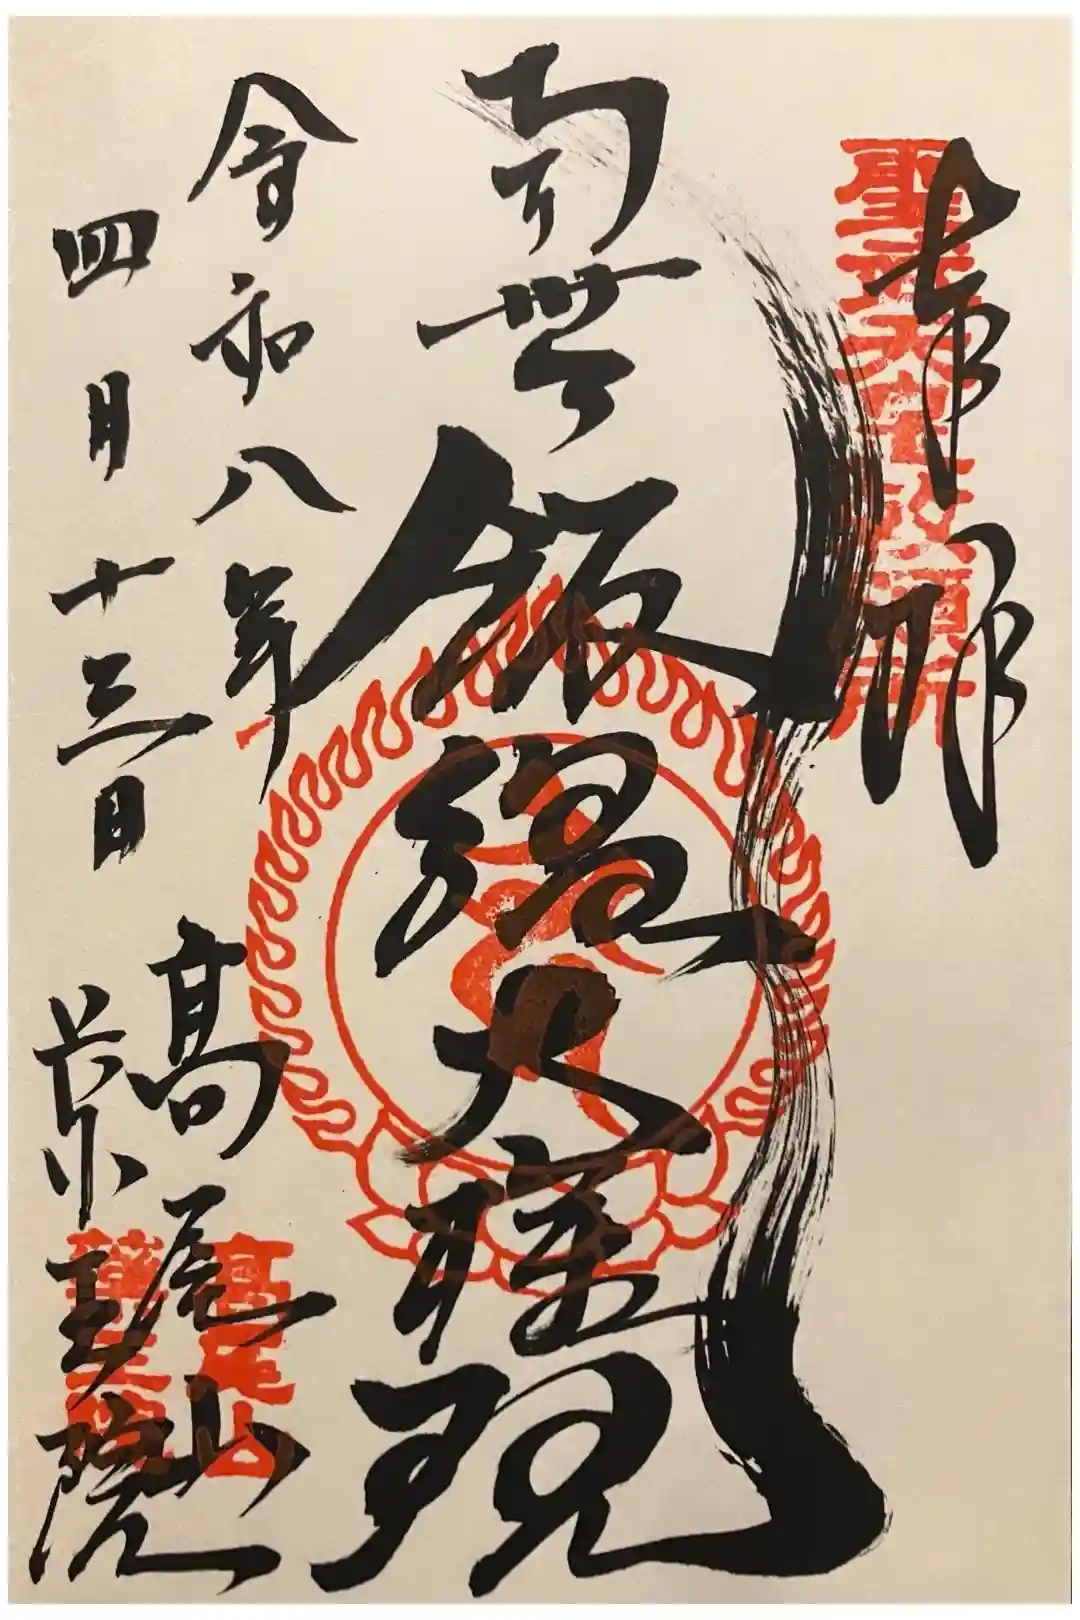 奉拝
聖武天皇勅願所
南無飯縄大権現
令和八年
四月十三日
高尾山
薬王院
高尾山
薬王院